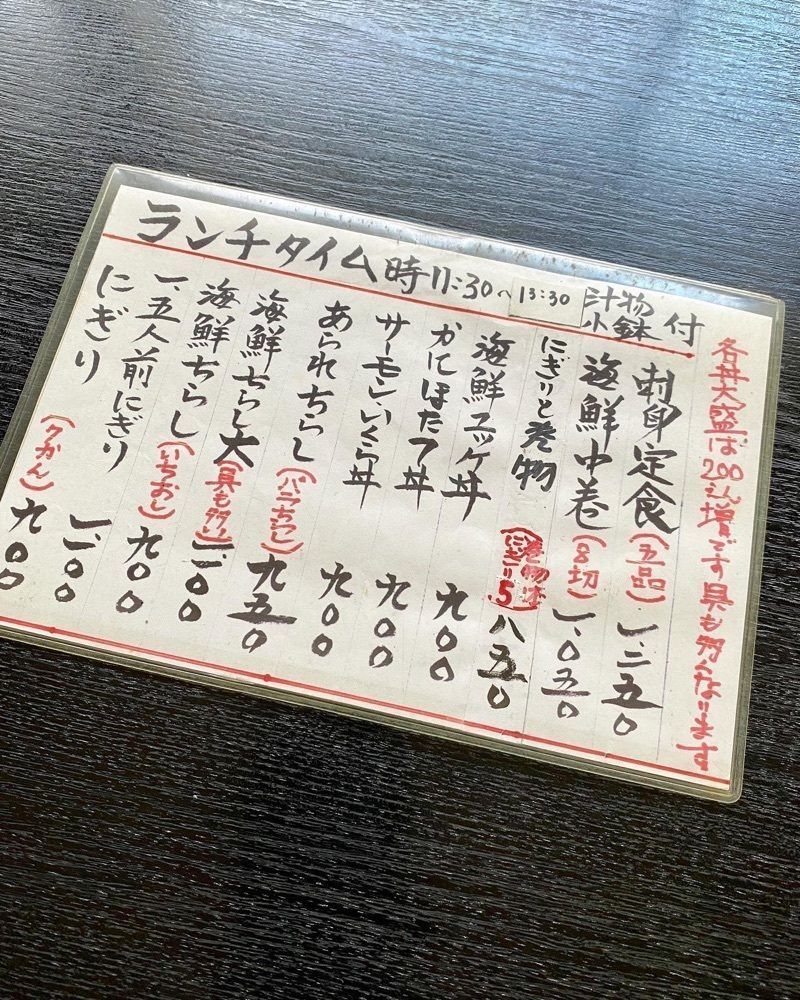 ランチタイム時11:30〜13:30 汁物小鉢付
各丼大盛は200えん増です具も多くなります
刺身定食(五品)一、二五〇
海鮮中巻(8切)一、〇五〇
にぎりと巻物(巻物1本にぎり5)八五〇
海鮮ユッケ丼 九〇〇
かにほたて丼 九〇〇
サーモンいくら丼 九〇〇
あられちらし(バラちらし)九五〇
海鮮ちらし大(具も多い)一、一〇〇
海鮮ちらし(いちおし)九〇〇
一、五人前にぎり 一、一〇〇
にぎり(7かん)九〇〇